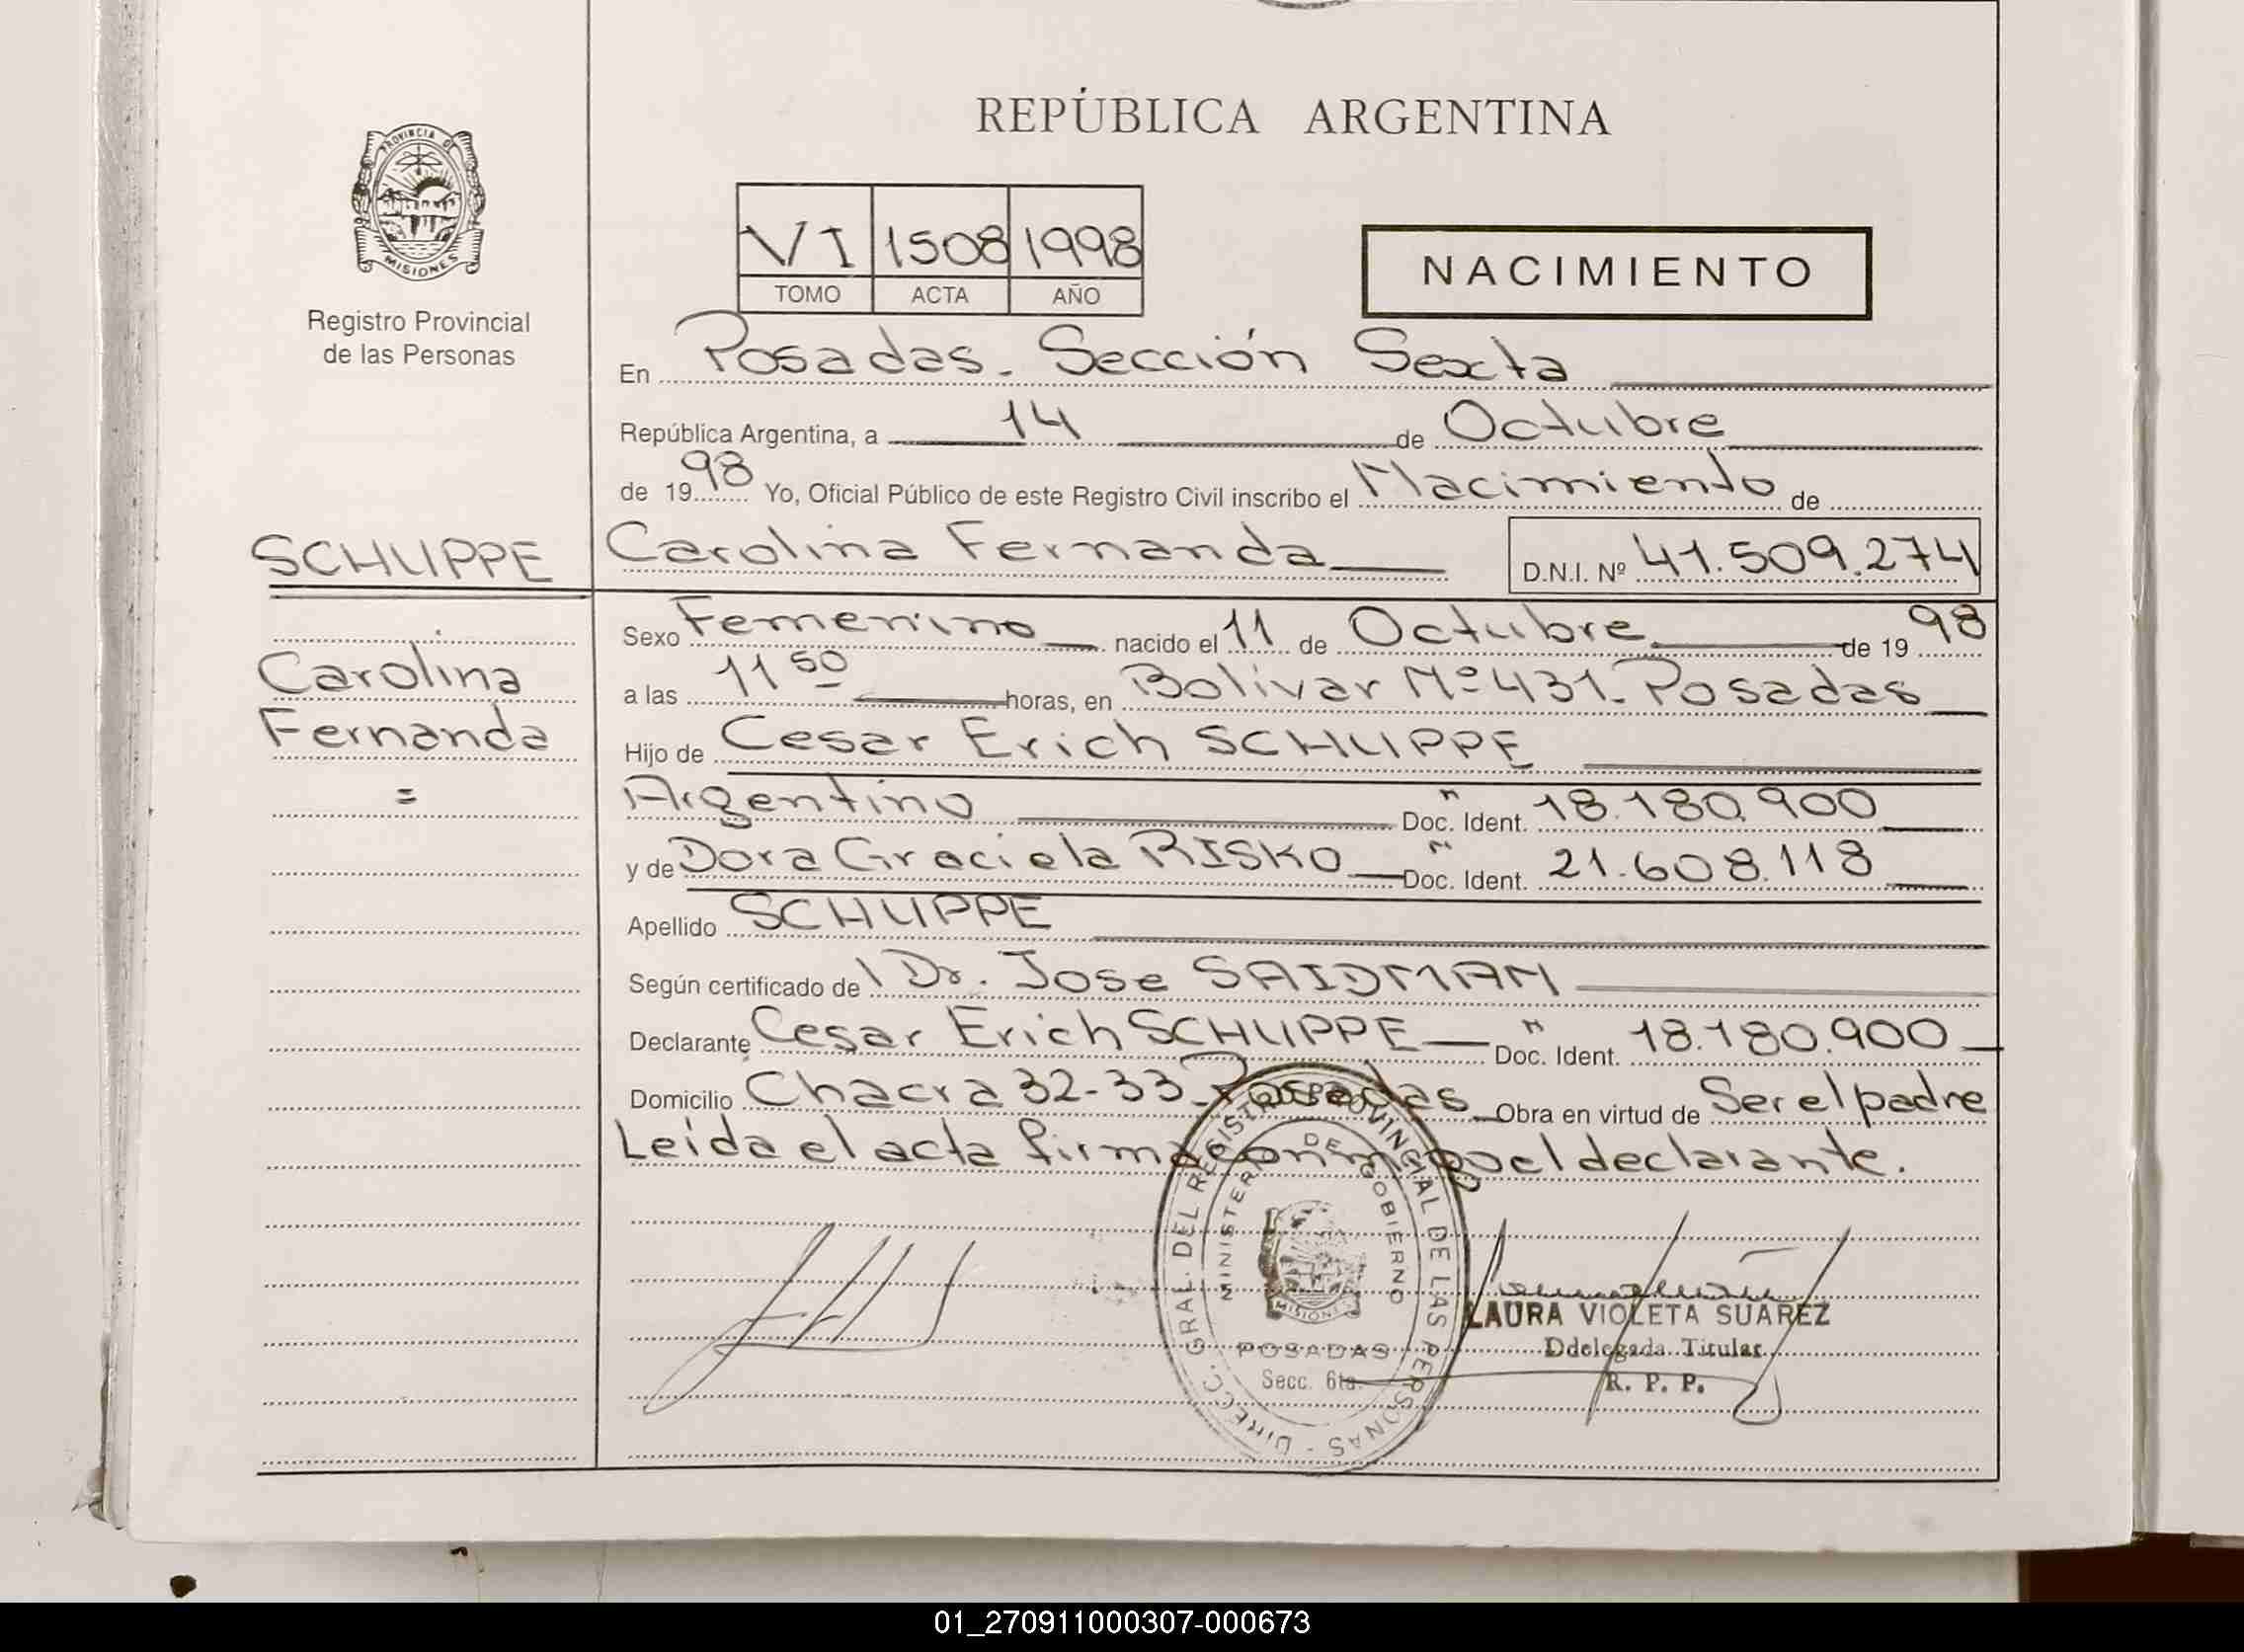 REPÚBLICA ARGENTINA
PROVINCIA DE
MISIONES
Registro Provincial
de las Personas
VI 1508 1998
TOMO ACTA AÑO
NACIMIENTO
En Posadas. Sección Sexta
República Argentina, a 14 de Octubre
de 1998 Yo, Oficial Público de este Registro Civil inscribo el Nacimiento de
SCHUPPE
Carolina Fernanda D.N.I. Nº 41.509.274
Carolina
Fernanda
=
Sexo Femenino nacido el 11 de Octubre de 1998
a las 11 50 horas, en Bolivar Nº 431. Posadas
Hijo de Cesar Erich SCHUPPE
Argentino Doc. Ident. 18.180.900
y de Dora Graciela RISKO Doc. Ident. 21.608.118
Apellido SCHUPPE
Según certificado de Dr. Jose SAIDMAN
Declarante Cesar Erich SCHUPPE Doc. Ident. 18.180.900
Domicilio Chacra 32-33 Posadas Obra en virtud de Ser el padre
Leída el acta firma conmigo el declarante.
DIRECC. GRAL. DEL REGISTRO PROVINCIAL DE LAS PERSONAS
MINISTERIO DE GOBIERNO
MISIONES
POSADAS
Secc. 6ta.
LAURA VIOLETA SUAREZ
Ddelegada Titular
R. P. P.
01_270911000307-000673